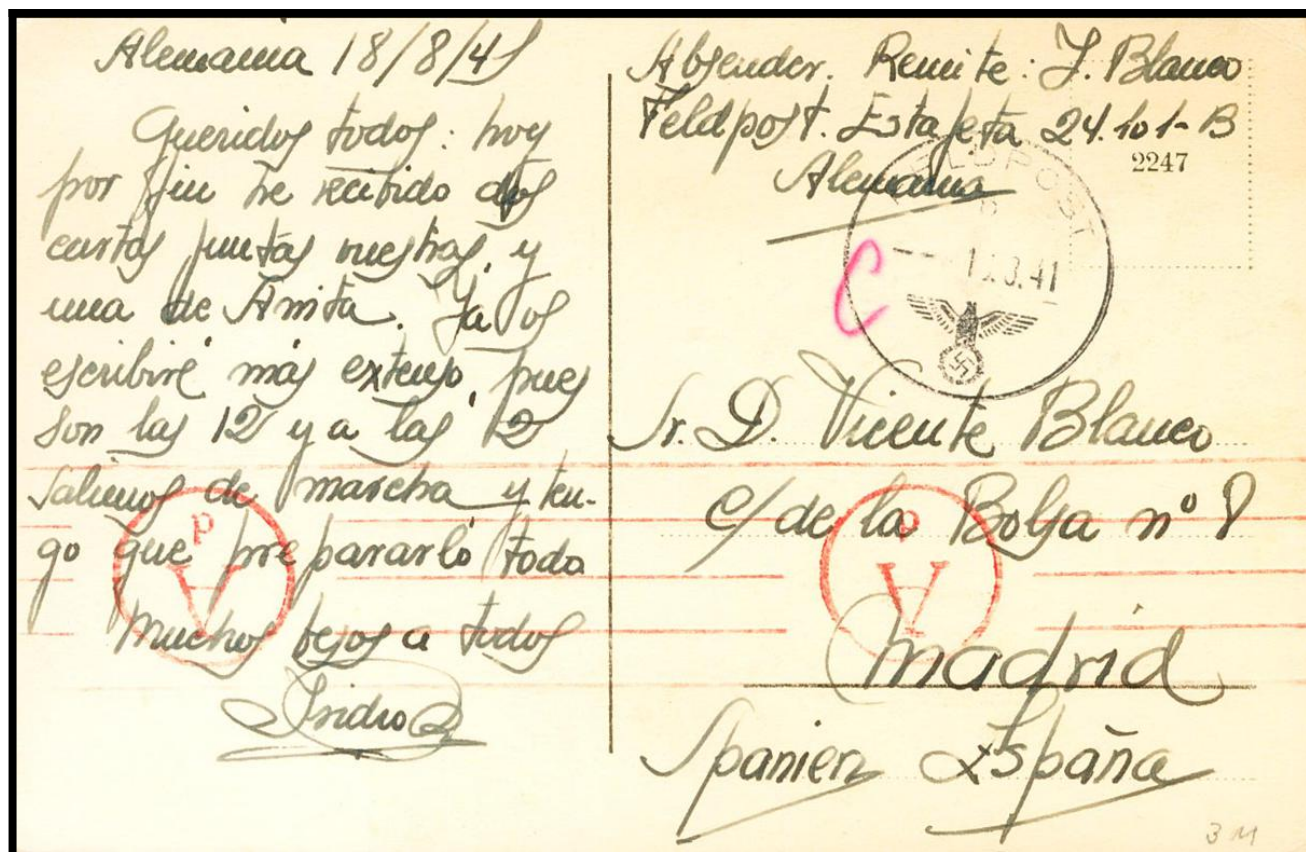 Alemania 18/8/41
Queridos todos: hoy
por fin he recibido dos
cartas juntas vuestras, y
una de Anita. Ya os
escribiré más extenso, pues
son las 12 y a las 2
salimos de marcha y ten-
go que prepararlo todo
Muchos besos a todos
Isidro
Absender. Remite: I. Blanco
Feldpost. Estafeta 24.101-B
Alemania
2247
FELDPOST
b
.8.41
C
Sr. D. Vicente Blanco
c/ de la Bolsa nº 8
Madrid
Spanien España
A d
A d
3 M